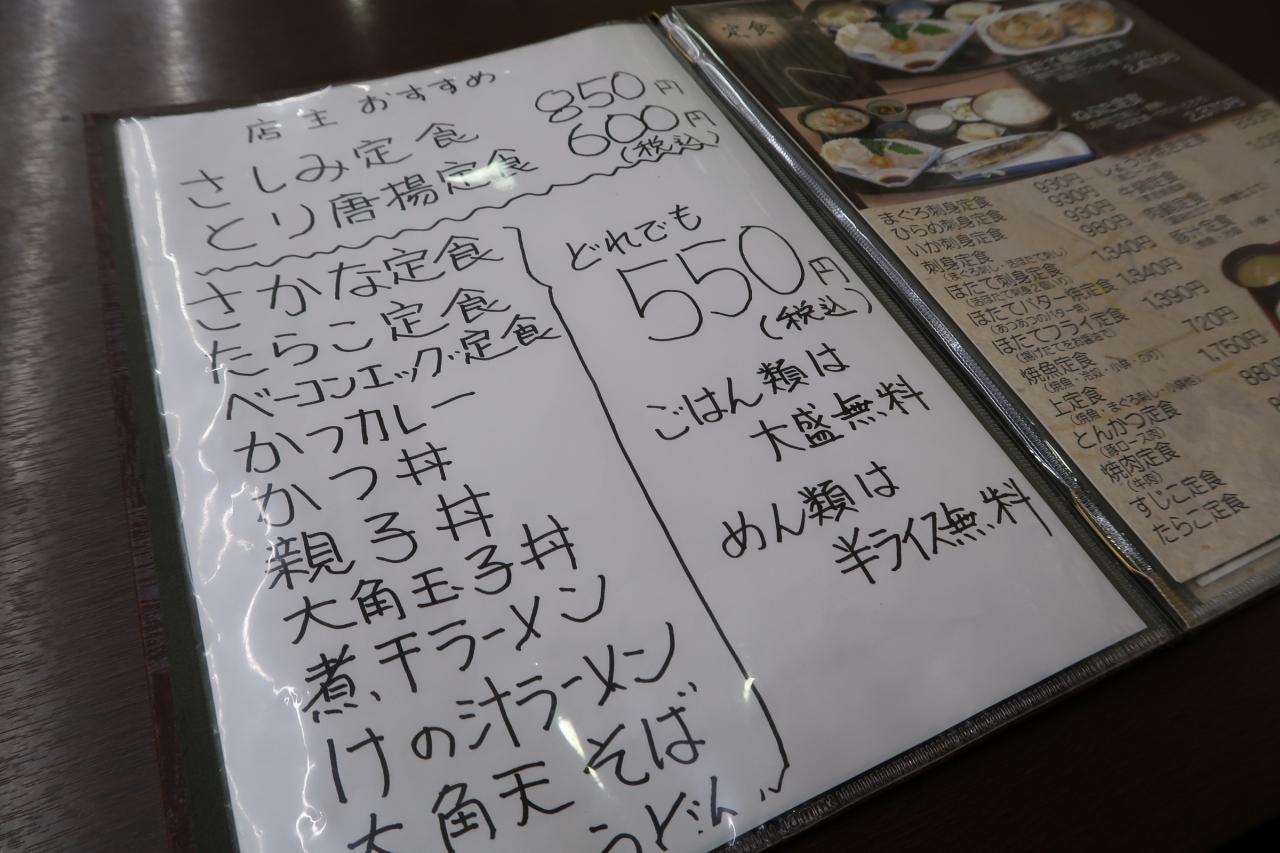 店主 おすすめ
さしみ定食 850円
とり唐揚定食 600円
(税込)
さかな定食
たらこ定食
ベーコンエッグ定食
かつカレー
かつ丼
親子丼
大角玉子丼
煮干ラーメン
けの汁ラーメン
大角天そば
うどん
どれでも
550円
(税込)
ごはん類は
大盛無料
めん類は
半ライス無料
定食
まぐろ刺身定食 930円
ひらめ刺身定食 930円
いか刺身定食 980円
刺身定食 1,340円
ほたて刺身定食 1,340円
ほたてバター焼定食 1,390円
(あつあつのバター焼)
ほたてフライ定食
(揚げたてをお召し)
焼魚定食 720円
上定食 1,750円
とんかつ定食 880円
(豚ロース肉)
焼肉定食
(牛肉)
すじこ定食
たらこ定食
牛鍋定食
豚汁定食